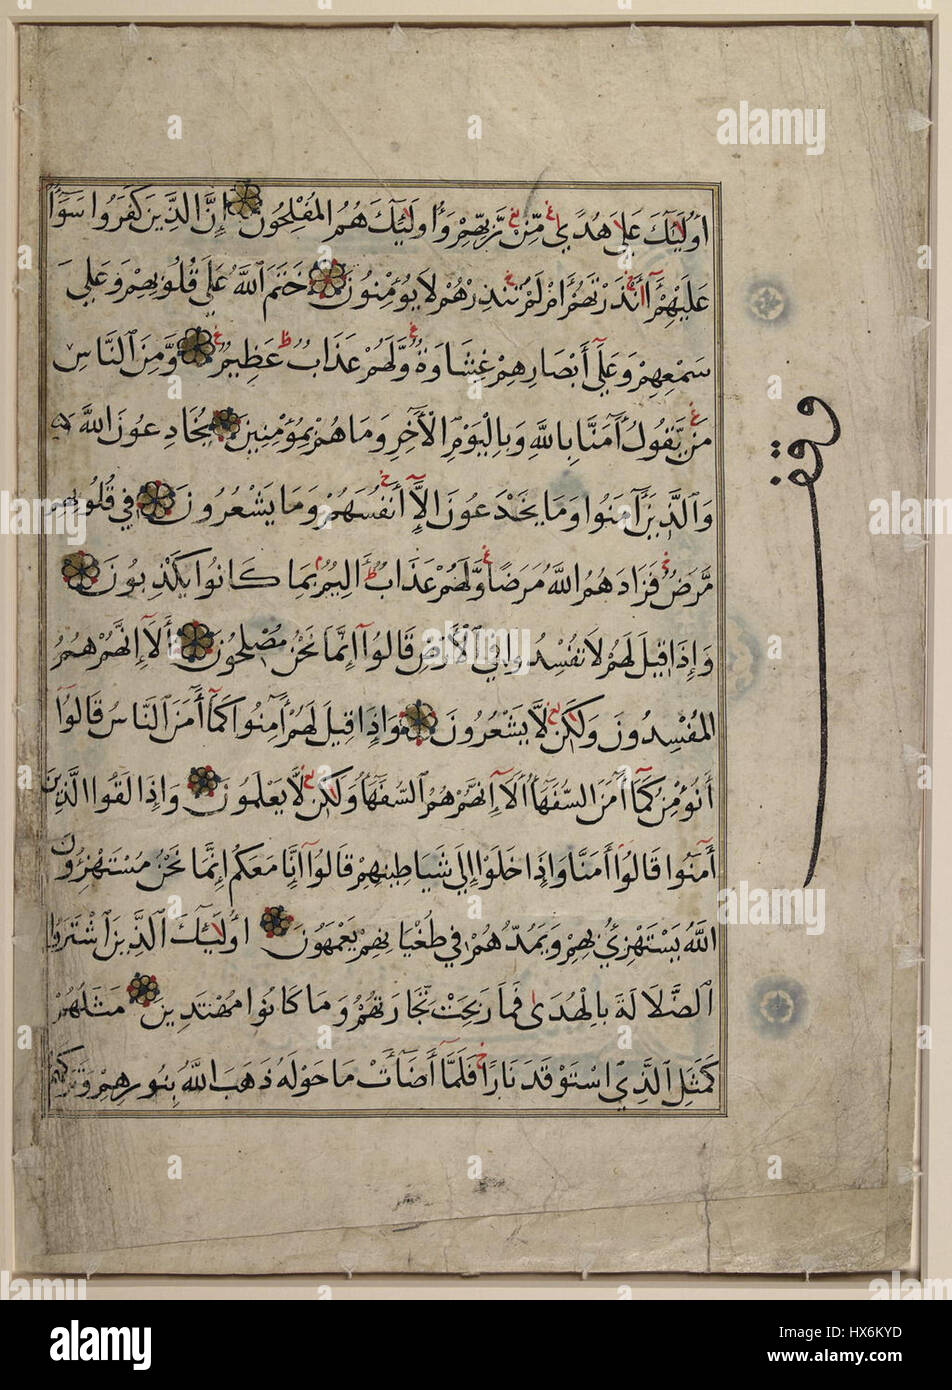 أُولَٰئِكَ عَلَىٰ هُدًى مِّن رَّبِّهِمْ وَأُولَٰئِكَ هُمُ الْمُفْلِحُونَ إِنَّ الَّذِينَ كَفَرُوا سَوَآءٌ
عَلَيْهِمْ أَأَنذَرْتَهُمْ أَمْ لَمْ تُنذِرْهُمْ لَا يُؤْمِنُونَ خَتَمَ اللَّهُ عَلَىٰ قُلُوبِهِمْ وَعَلَىٰ
سَمْعِهِمْ وَعَلَىٰ أَبْصَارِهِمْ غِشَاوَةٌ وَلَهُمْ عَذَابٌ عَظِيمٌ وَمِنَ النَّاسِ
مَن يَقُولُ آمَنَّا بِاللَّهِ وَبِالْيَوْمِ الْآخِرِ وَمَا هُم بِمُؤْمِنِينَ يُخَادِعُونَ اللَّهَ
وَالَّذِينَ آمَنُوا وَمَا يَخْدَعُونَ إِلَّا أَنفُسَهُمْ وَمَا يَشْعُرُونَ فِي قُلُوبِهِم
مَّرَضٌ فَزَادَهُمُ اللَّهُ مَرَضًا وَلَهُمْ عَذَابٌ أَلِيمٌ بِمَا كَانُوا يَكْذِبُونَ
وَإِذَا قِيلَ لَهُمْ لَا تُفْسِدُوا فِي الْأَرْضِ قَالُوا إِنَّمَا نَحْنُ مُصْلِحُونَ أَلَا إِنَّهُمْ هُمُ
الْمُفْسِدُونَ وَلَٰكِن لَّا يَشْعُرُونَ وَإِذَا قِيلَ لَهُمْ آمِنُوا كَمَا آمَنَ النَّاسُ قَالُوا
أَنُؤْمِنُ كَمَا آمَنَ السُّفَهَاءُ أَلَا إِنَّهُمْ هُمُ السُّفَهَاءُ وَلَٰكِن لَّا يَعْلَمُونَ وَإِذَا لَقُوا الَّذِينَ
آمَنُوا قَالُوا آمَنَّا وَإِذَا خَلَوْا إِلَىٰ شَيَاطِينِهِمْ قَالُوا إِنَّا مَعَكُمْ إِنَّمَا نَحْنُ مُسْتَهْزِئُونَ
اللَّهُ يَسْتَهْزِئُ بِهِمْ وَيَمُدُّهُمْ فِي طُغْيَانِهِمْ يَعْمَهُونَ أُولَٰئِكَ الَّذِينَ اشْتَرَوُا
الضَّلَالَةَ بِالْهُدَىٰ فَمَا رَبِحَت تِّجَارَتُهُمْ وَمَا كَانُوا مُهْتَدِينَ مَثَلُهُمْ
كَمَثَلِ الَّذِي اسْتَوْقَدَ نَارًا فَلَمَّا أَضَاءَتْ مَا حَوْلَهُ ذَهَبَ اللَّهُ بِنُورِهِمْ وَتَرَكَهُمْ
وقف
alamy
Image ID: HX6KYD
www.alamy.com